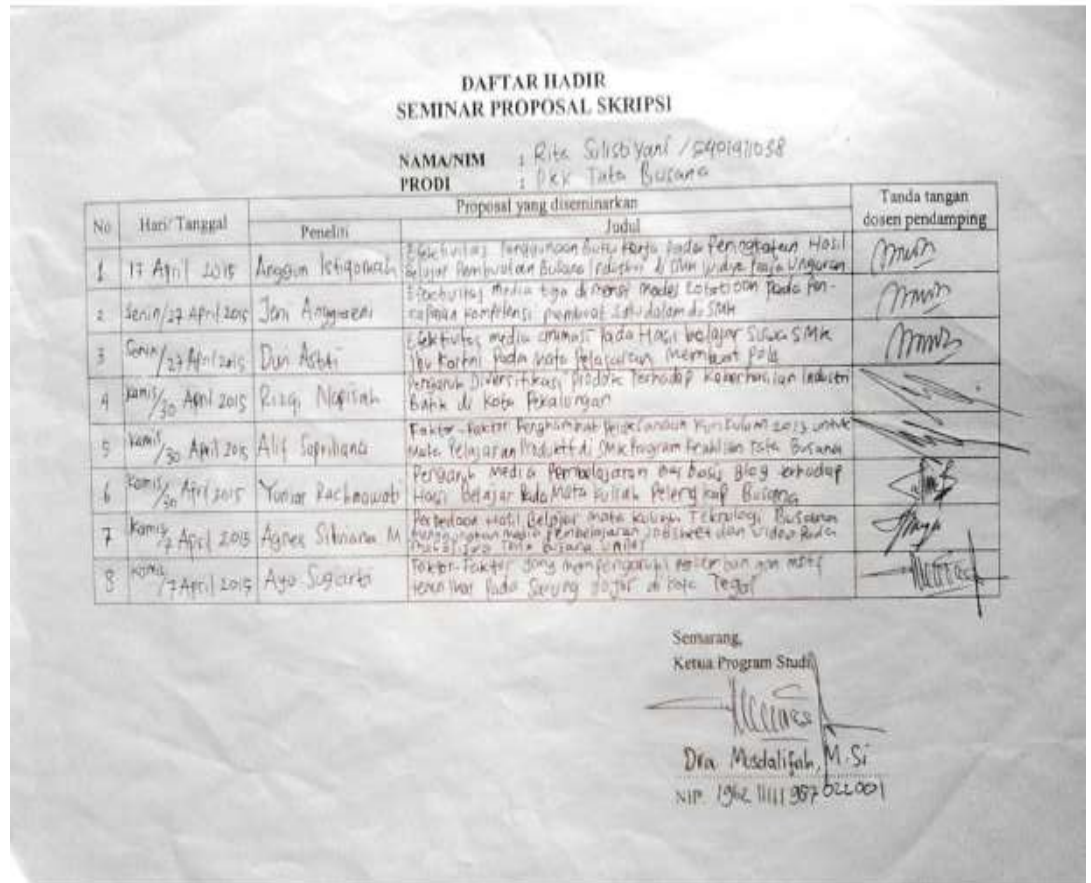 DAFTAR HADIR
SEMINAR PROPOSAL SKRIPSI
NAMA/NIM : Rita Sulistiyani / 5401911038
PRODI : PKK Tata Busana
No Hari/ Tanggal Proposal yang diseminarkan Tanda tangan dosen pendamping
Peneliti Judul
1 17 April 2015 Anggun Istiqomah Efektivitas Penggunaan Buku Kerja Pada Peningkatan Hasil
Belajar Pembuatan Busana Industri di SMK Widya Praja Ungaran
2 Senin/27 April 2015 Jeni Anggraeni Efektivitas media tiga dimensi model Pada Pen-
capaian kompetensi membuat di SMK
3 Senin/27 April 2015 Dwi Astuti Efektivitas media animasi Pada Hasil belajar Siswa SMK
Ibu Kartini Pada Mata Pelajaran membuat pola
4 Kamis/30 April 2015 Rizqi Nafisah Pengaruh Diversifikasi Produk Terhadap Keberhasilan Industri
Batik di Kota Pekalongan
5 Kamis/30 April 2015 Alif Sapriliana Faktor-Faktor Penghambat Pelaksanaan Kurikulum 2013 untuk
Mata Pelajaran Produktif di SMK Program Keahlian Tata Busana
6 Kamis/30 April 2015 Yuniar Rachmawati Pengaruh Media Pembelajaran berbasis Blog terhadap
Hasil Belajar Pada Mata kuliah Pelengkap Busana
7 Kamis/7 April 2015 Agnes M Perbedaan Hasil Belajar mata kuliah Teknologi Busana
menggunakan media Pembelajaran Jobsheet dan Video Pada
Mahasiswa Tata Busana Unnes
8 Kamis/7 April 2015 Ayu Sugiarti Faktor-Faktor yang mempengaruhi motif
Pada Sarung di Kota Tegal
Semarang,
Ketua Program Studi
Dra Musdalifah, M.Si
NIP. 196211111987022001